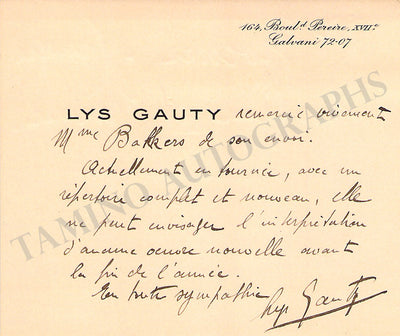 164, Boul.d Pereire, XVIIe
Galvani 72-07
LYS GAUTY remercie vivement
Mme Bakkers de son envoi.
Actuellement en tournée, avec un
répertoire complet et nouveau, elle
ne peut envisager l'interprétation
d'aucune oeuvre nouvelle avant
la fin de l'année.
En toute sympathie
Lys Gauty
TAMINO AUTOGRAPHS